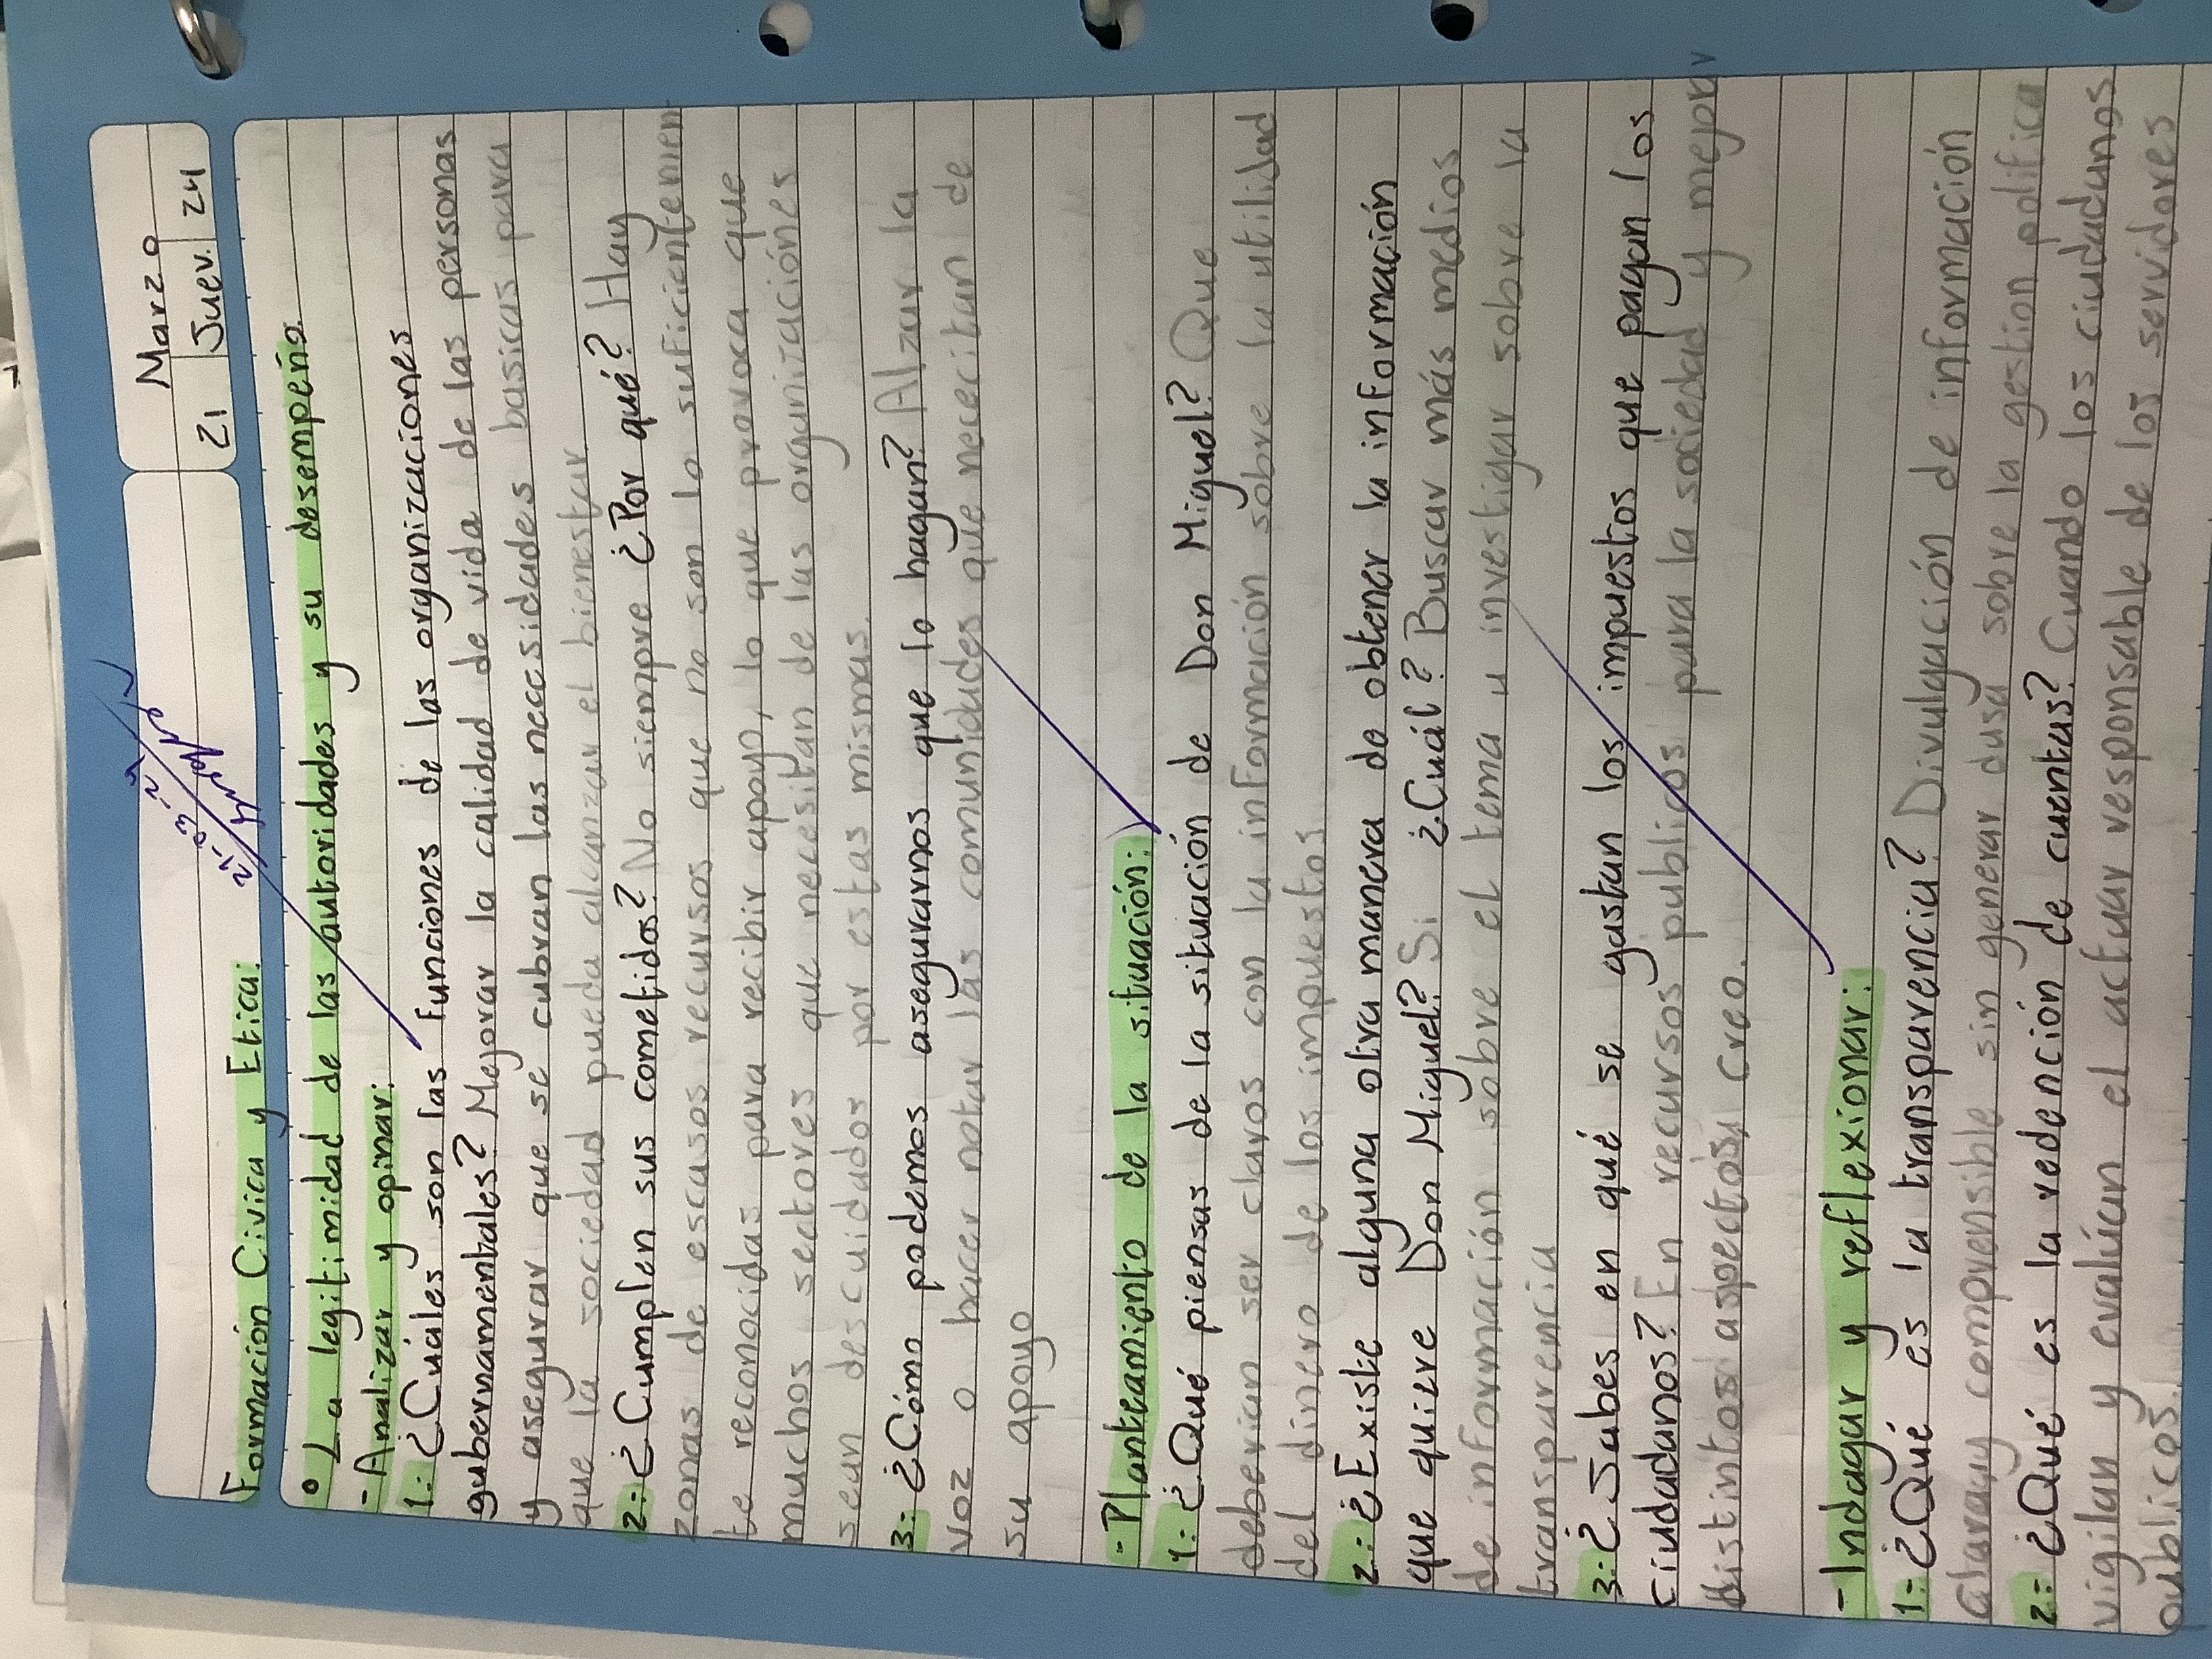 Marzo
21 Juev. 24
Formación Civica y Etica:
• La legitimidad de las autoridades y su desempeño.
- Analizar y opinar:
1.- ¿Cuáles son las funciones de las organizaciones
gubernamentales? Mejorar la calidad de vida de las personas
y asegurar que se cubran las necesidades basicas para
que la sociedad pueda alcanzar el bienestar
2.- ¿Cumplen sus cometidos? No siempre ¿Por qué? Hay
zonas de escasos recursos que no son lo suficientemen
te reconocidas para recibir apoyo, lo que provoca que
muchos sectores que necesitan de las organizaciónes
sean descuidados por estas mismas.
3.- ¿Cómo podemos asegurarnos que lo hagan? Alzar la
voz o hacer notar las comunidades que necesitan de
su apoyo
- Planteamiento de la situación:
1.- ¿Qué piensas de la situación de Don Miguel? Que
deberían ser claros con la información sobre la utilidad
del dinero de los impuestos
2.- ¿Existe alguna otra manera de obtener la información
que quiere Don Miguel? Si ¿Cuál? Buscar más medios
de información sobre el tema u investigar sobre la
transparencia
3.- ¿Sabes en qué se gastan los impuestos que pagan los
ciudadanos? En recursos publicos para la sociedad y mejorar
distintos aspectos, creo.
- Indagar y reflexionar:
1.- ¿Qué es la transparencia? Divulgación de información
clara y comprensible sin generar duda sobre la gestion politica
2.- ¿Qué es la redención de cuentas? Cuando los ciudadanos
vigilan y evalúan el actuar responsable de los servidores
publicos.